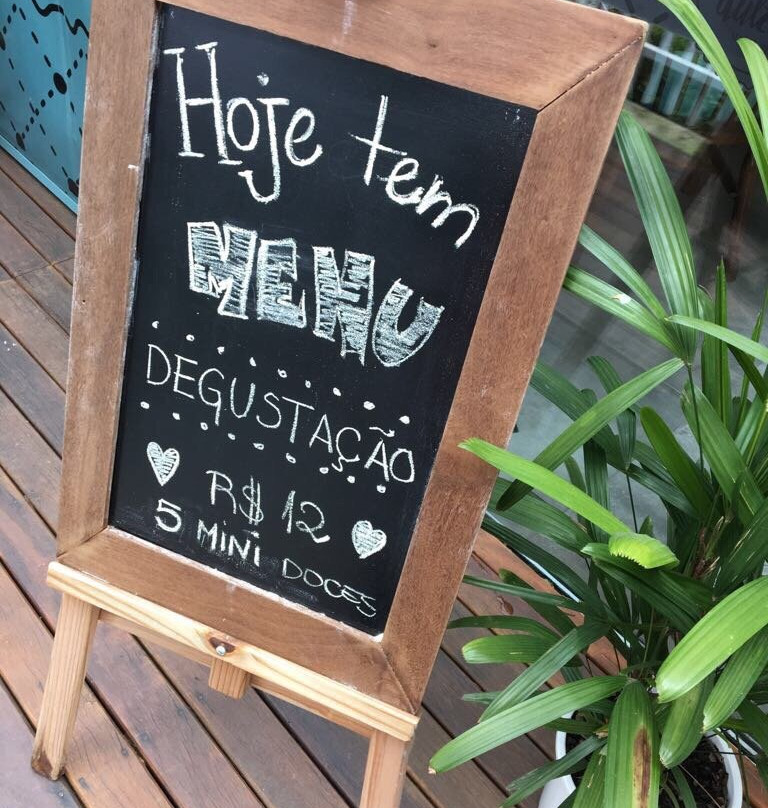 Hoje tem
MENU
DEGUSTAÇÃO
R$ 12
5 MINI DOCES